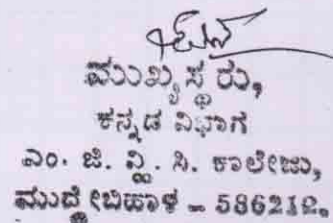 ಮುಖ್ಯಸ್ಥರು,
ಕನ್ನಡ ವಿಭಾಗ
ಎಂ. ಜಿ. ವ್ಹಿ. ಸಿ. ಕಾಲೇಜು,
ಮುದ್ದೇಬಿಹಾಳ - 586212.